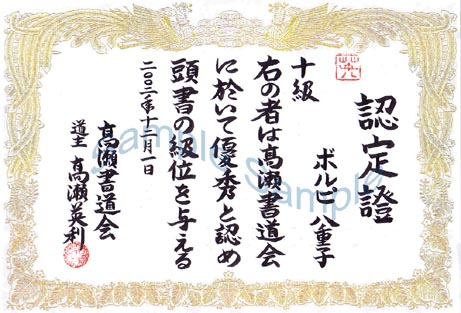 認定證
ボルピ 八重子
十級
右の者は高瀬書道会
に於いて優秀と認め
頭書の級位を与える
二〇〇二年十二月一日
高瀬書道会
道主 高瀬英利
Sample Sample